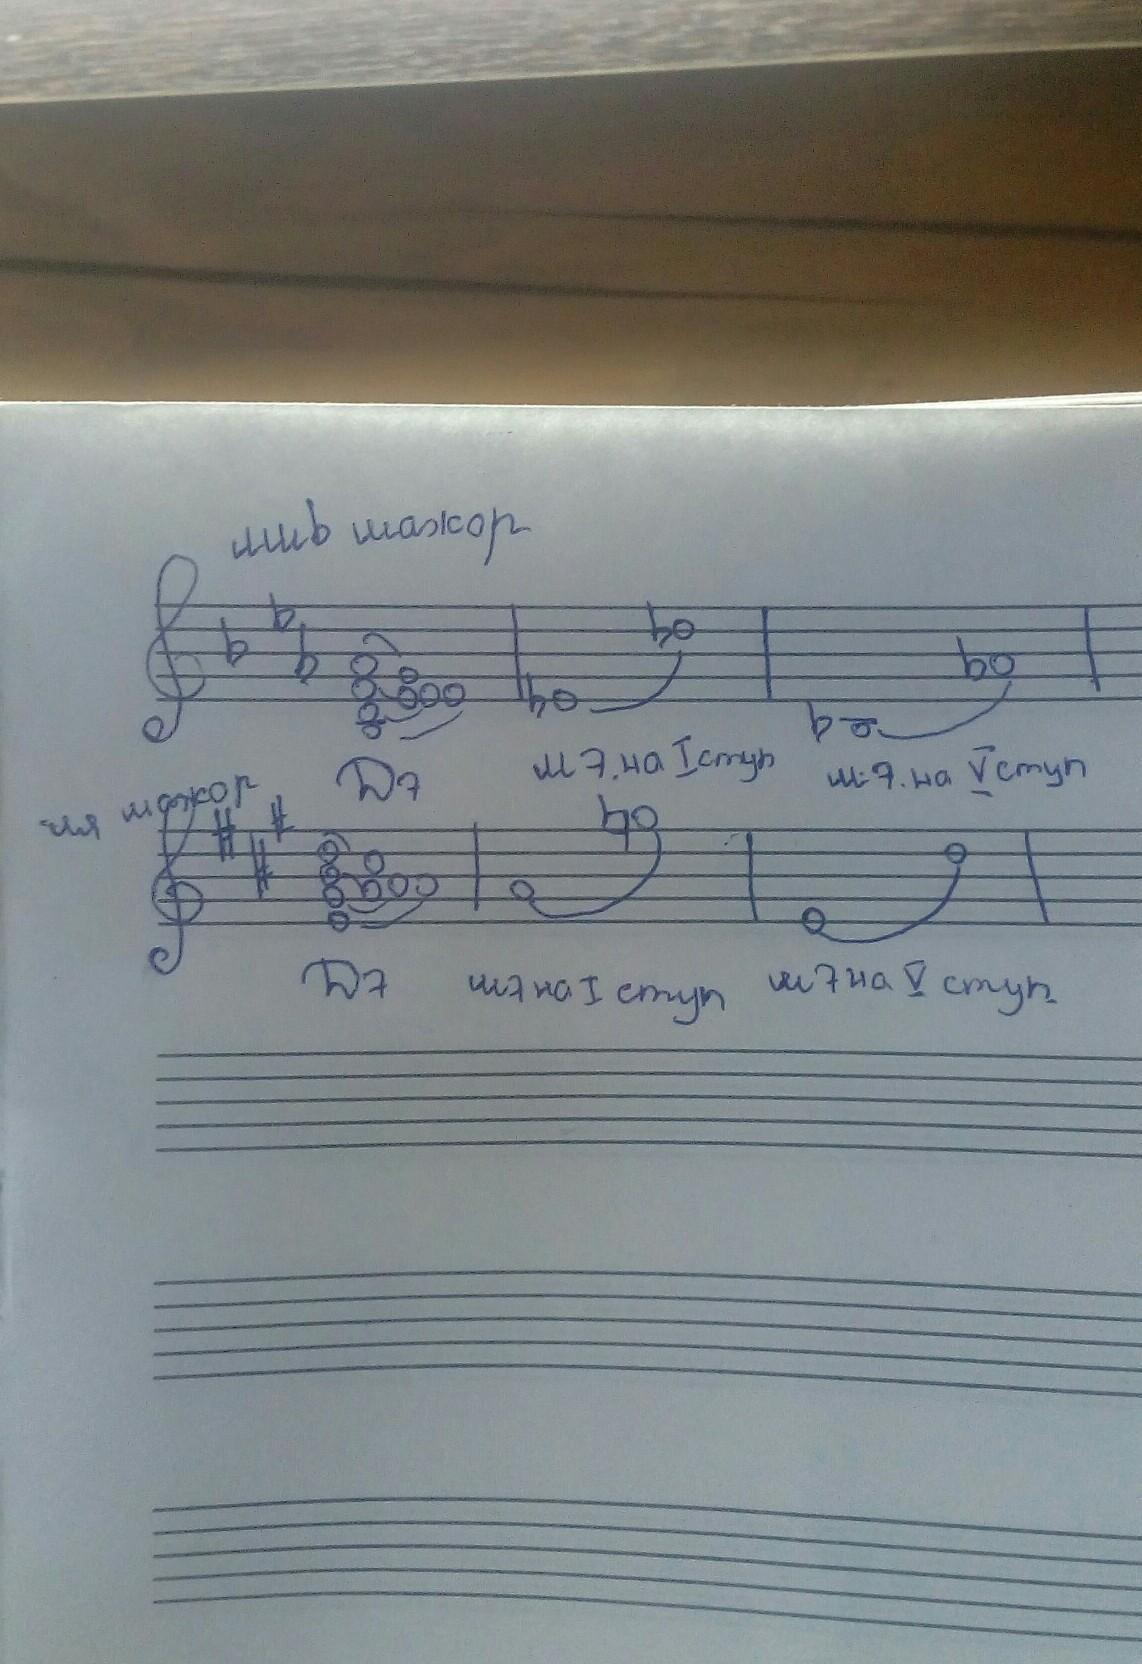 миb мажор
Д7 м7.на I ступ м.7.на V ступ
ля мажор
Д7 м7 на I ступ м7 на V ступ.